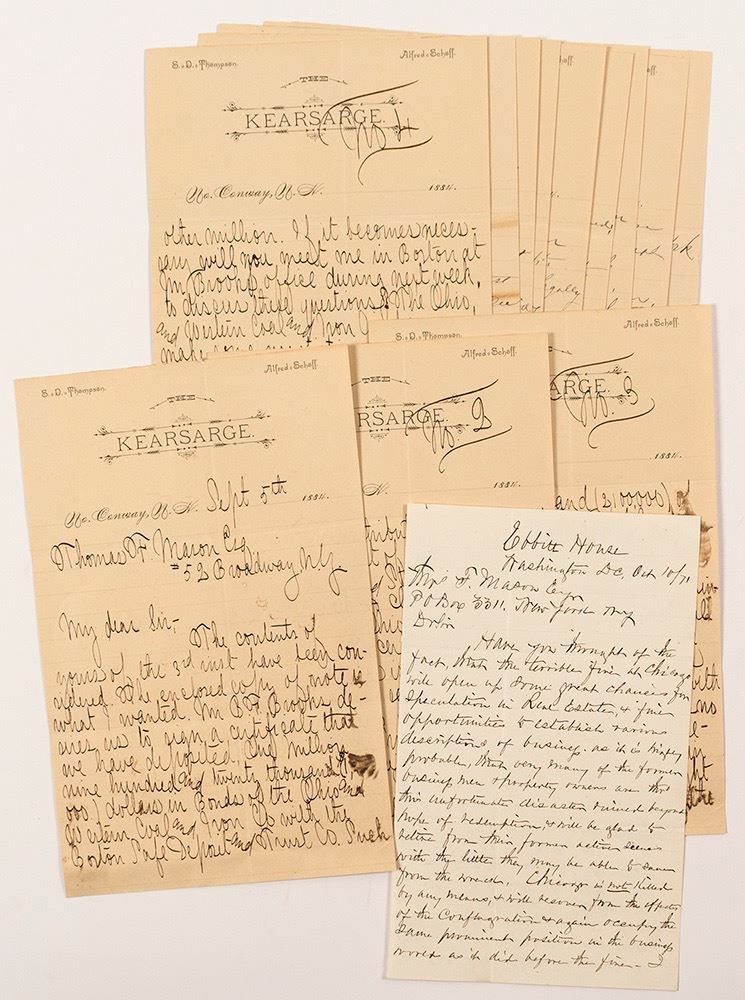 S. D. Thompson.
Alfred Schoff.
THE
KEARSARGE.
No 4
No. Conway, N. H. 1884.
other million. If it becomes neces-
sary will you meet me in Boston at
Mr Brooks office during next week,
to discuss these questions? The Ohio,
and Western Coal and Iron
make some
S. D. Thompson.
Alfred Schoff.
ARGE.
No. 3
1884.
and (2,100,000)
with
no
S. D. Thompson.
Alfred Schoff.
THE
RSARGE.
No. 2
H. 1884.
S. D. Thompson.
Alfred Schoff.
THE
KEARSARGE.
No. Conway, N. H. Sept 5th 1884.
Thomas F. Mason Esq
52 Broadway N.Y.
My dear Sir,- The contents of
yours of the 3rd inst have been con-
sidered. The enclosed copy of note is
what I wanted. Mr B. F. Brooks de-
sires us to sign a certificate that
we have deposited One Million
nine hundred and twenty thousand
000) dollars in Bonds of the Ohio and
Western Coal and Iron Co with the
Boston Safe Deposit and Trust Co. Such
Ebbitt House
Washington DC, Oct 10/71
Thos F. Mason Esqr
PO Box 3311. New York NY
Dr Sir
Have you thought of the
fact, that the terrible fire at Chicago
will open up some great chances for
speculation in Real Estate, & fine
opportunities to establish various
descriptions of business. as it is highly
probable, that very many of the former
business men & property owners are by
this unfortunate disaster ruined beyond
hope of redemption, & will be glad to
retire from their former active scenes
with the little they may be able to save
from the wreck. Chicago is not killed
by any means, & will recover from the effects
of the Conflagration & again occupy the
same prominent position in the business
world as it did before the fire - I